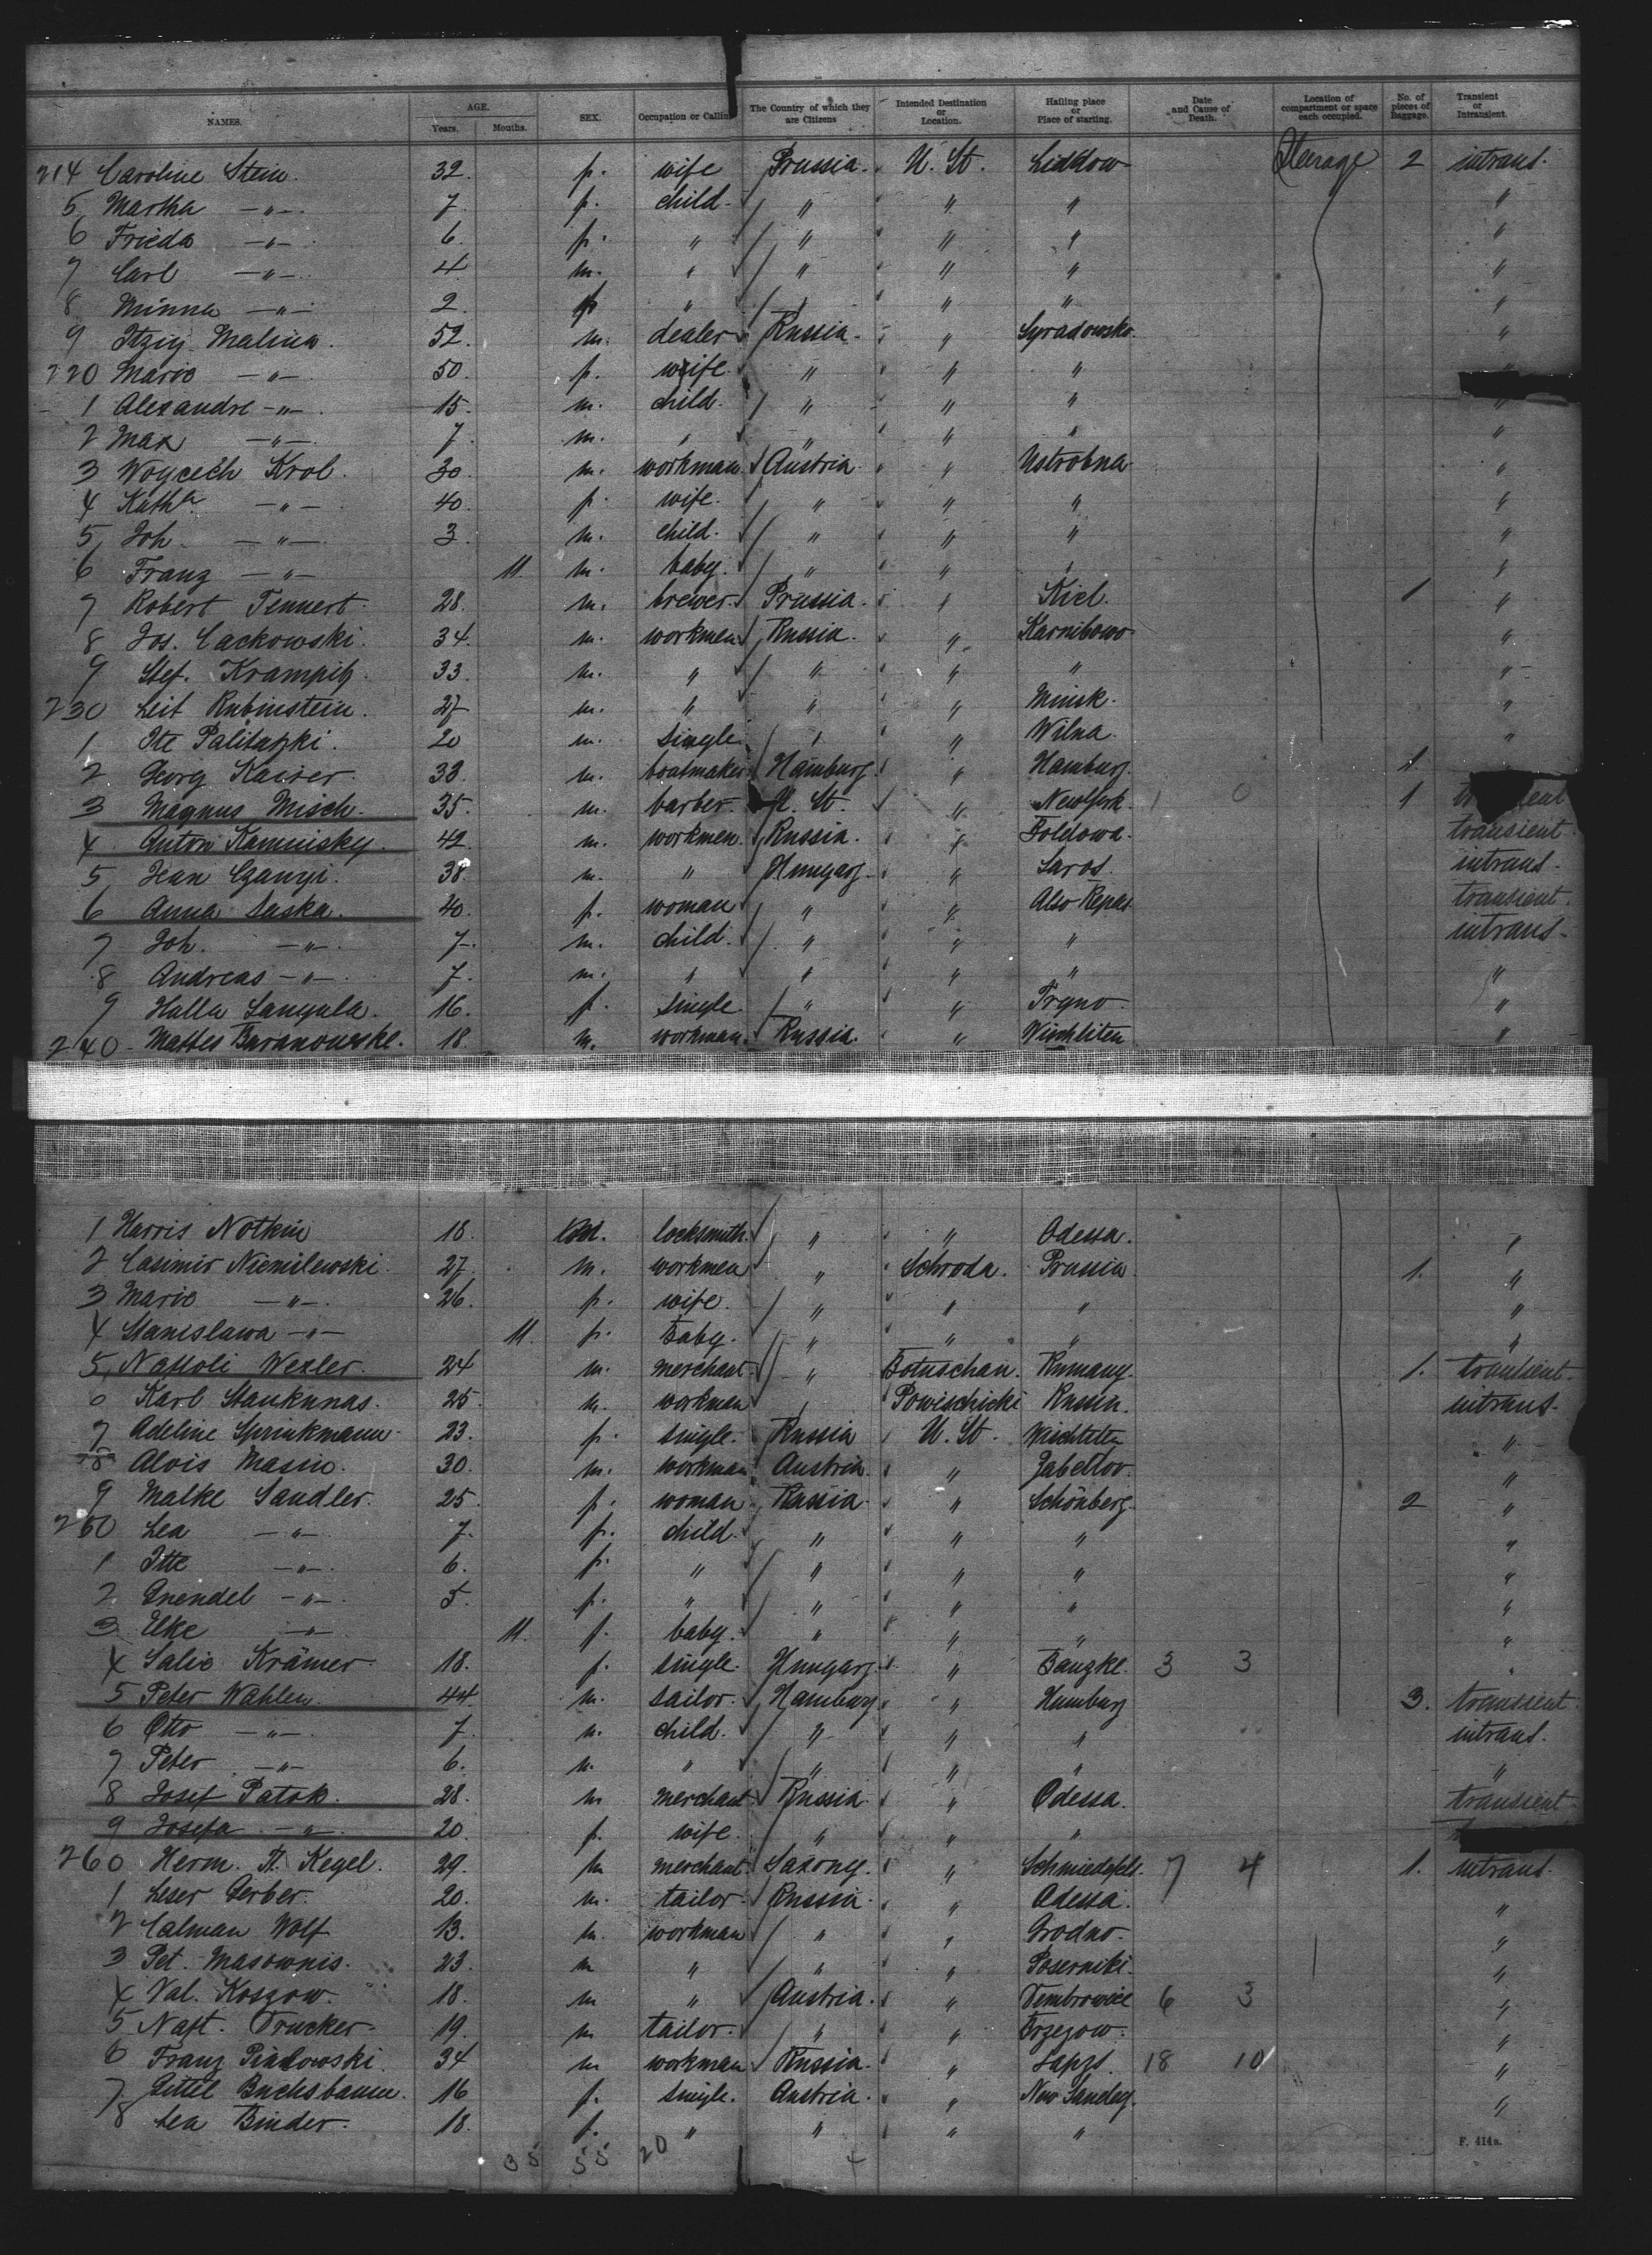 NAMES. AGE. Years. Months. SEX. Occupation or Calling The Country of which they are Citizens Intended Destination or Location. Hailing place or Place of starting. Date and Cause of Death. Location of compartment or space each occupied. No. of pieces of Baggage. Transient or Intransient.
214 Caroline Stein. 32. f. wife Prussia. U. St. Steerage 2 intrans.
5 Martha —"— 7. f. child " " " "
6 Frieda —"— 6. f. " " " " "
7 Carl —"— 4 m. " " " " "
8 Minna —"— 2. f " " " " "
9 Itzig Malina. 52. m. dealer Russia. " Syradowsko. "
220 Marie —"— 50. f. wife. " " " "
1 Alexandre —"— 15. m. child. " " " "
2 Max —"— 7. m. " " " " "
3 Woycech Krol. 30. m. workman Austria " Ustrobna "
4 Kath.a —"— 40. f. wife. " " " "
5 Joh. —"— 3. m. child. " " " "
6 Franz —"— 11. m. baby. " " " "
7 Robert Tennert. 28. m. brewer. Prussia. " Kiel. 1 "
8 Jos. Cackowski. 34. m. workmen Russia. " Karnibowo "
9 Stef. Krampitz. 33. m. " " " " "
230 Leib Rubinstein. 27 m. " " " Minsk. "
1 Ite Palitazki. 20 m. single. " " Wilna. "
2 Georg Kaiser. 38. m. boatmaker Hamburg. " Hamburg. 1. "
3 Magnus Misch. 35. m. barber. U. St. " NewYork. 1 0 1
4 Anton Kaminsky. 42. m. workmen. Russia. " transient.
5 Jean Czanyi. 38. m. " Hungary. " Saros. intrans.
6 Anna Saska. 40. f. woman " " Also Repas transient.
7 Joh. —"— 7. m. child. " " " intrans.
8 Andreas —"— 7. m. " " " " "
9 Halla Sangula. 16. f. single. " " Tryno "
240 Mattes Baranowske. 18. m. workman. Russia. " Wischtiten "
1 Harris Notkin 18. m. locksmith. " " Odessa. "
2 Casimir Niemilewski. 27. m. workmen " Schroda. Prussia. 1. "
3 Marie —"— 26. f. wife. " " " "
4 Stanislawa —"— 11. f. Baby. " " " "
5 Naftoli Wexler. 24 m. merchant. " Botuschan. Rumany. 1. transient.
6 Karl Staukunas. 25. m. workman " Powischicki Russia. intrans.
7 Adeline Sprinkmann. 23. f. single. Russia U. St. Wischtiten "
8 Alois Massin. 30. m. workman Austria. " Jabeltov. "
9 Malke Sandler. 25. f. woman Russia. " Schönberg. 2 "
250 Lea —"— 7. f. child. " " " "
1 Itte —"— 6. f. " " " " "
2 Gnendel —"— 5. f. " " " " "
3 Elke —"— 11. f. baby. " " " "
4 Salie Krämer 18. f. single. Hungary. " 3 3 "
5 Peter Wahlen. 44. m. sailor. Hamburg. " Hamburg 3. transient.
6 Otto —"— 7. m. child. " " " intrans.
7 Peter —"— 6. m. " " " " "
8 Josef Patok. 28. m merchant. Russia. " Odessa. transient.
9 Josefa —"— 20. f. wife. " " "
260 Herm. A. Kegel. 29. m merchant. Saxony. " 7 4 1. intrans.
1 Leser Gerber. 20. m. tailor. Russia. " Odessa. "
2 Calman Wolf 13. m. workman " " Grodno. "
3 Pet. Masownis. 23. m " " " Poserniki. "
4 Val. Koszow. 18. m " Austria. " Dembrowice 6 3 "
5 Naft. Trucker. 19. m tailor. " " Brzezow. "
6 Franz Piatkowski. 34 m workman Russia. " 18 10 "
7 Gittel Buchsbaum. 16 f. single. Austria. " New Sandez. "
8 Lea Binder. 18. f. " " " " "
35 55 20
F. 414a.